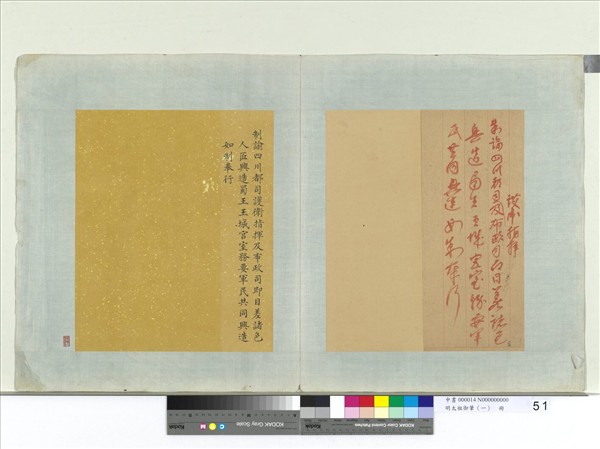 護衛指揮
制諭四川都司及布政司即日差諸色
造蜀王王城宮室務要軍
民共同興造如制奉行
制諭四川都司護衛指揮及布政司即日差諸色
人匠興造蜀王王城宮室務要軍民共同興造
如制奉行
KODAK Gray Scale
C Y M
Kodak
KODAK Color Control Patches
中書 000014 N000000000
明太祖御筆(一) 冊
51